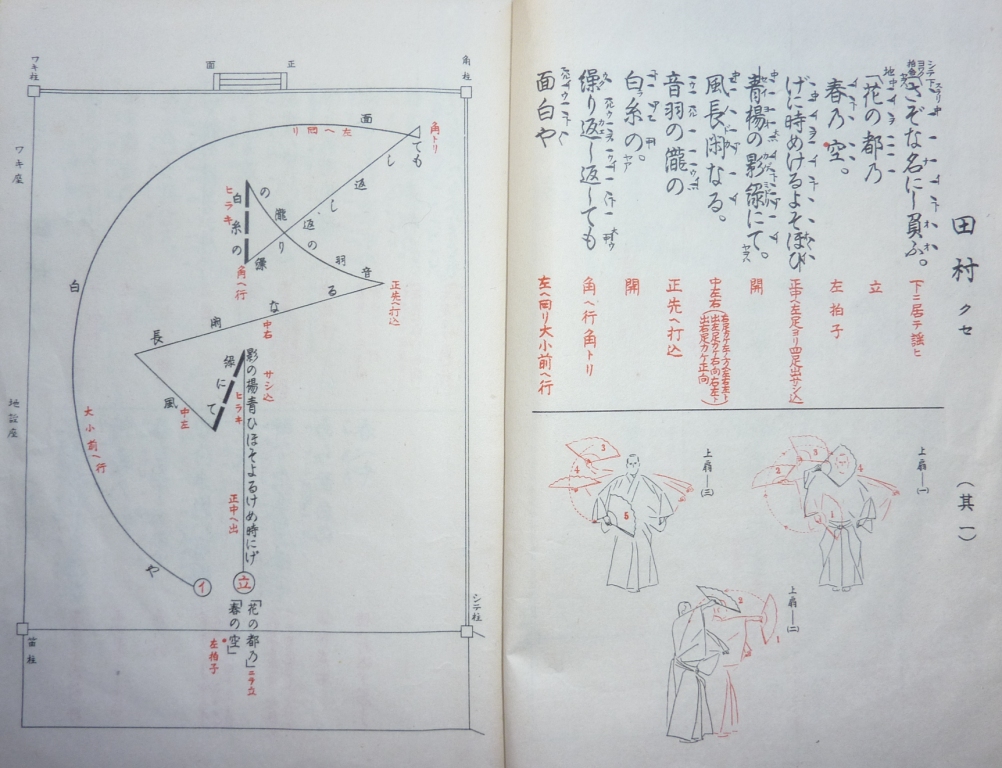 田村 クセ
(其一)
シテ下
さぞな名にし負ふ。
下ニ居テ謡ヒ
地
「花の都乃
立
春乃空。
左拍子
げに時めけるよそほひ
正中へ左足ヨリ四足出サシ込
青楊の影緑にて。
開
風長閑なる。
中左右
音羽の瀧の
正先へ打込
白糸の。
開
繰り返し返しても
角へ行角トリ
面白や
左へ回リ大小前へ行
上扇(一)
1
2
3
4
上扇(二)
1
2
上扇(三)
3
4
5
ワキ柱
正面
角柱
ワキ座
地謡座
笛柱
シテ柱
立
「花の都乃」ニテ立
「春の空」
左拍子
げに時めけるよそほひ青楊の影
正中へ出
サシ込
緑にて
ヒラキ
風
中左
長閑なる
中右
音羽の瀧の
正先へ打込
白糸の
ヒラキ
繰り返し返しても
角へ行
角トリ
面白や
左へ回リ
大小前へ行
イ